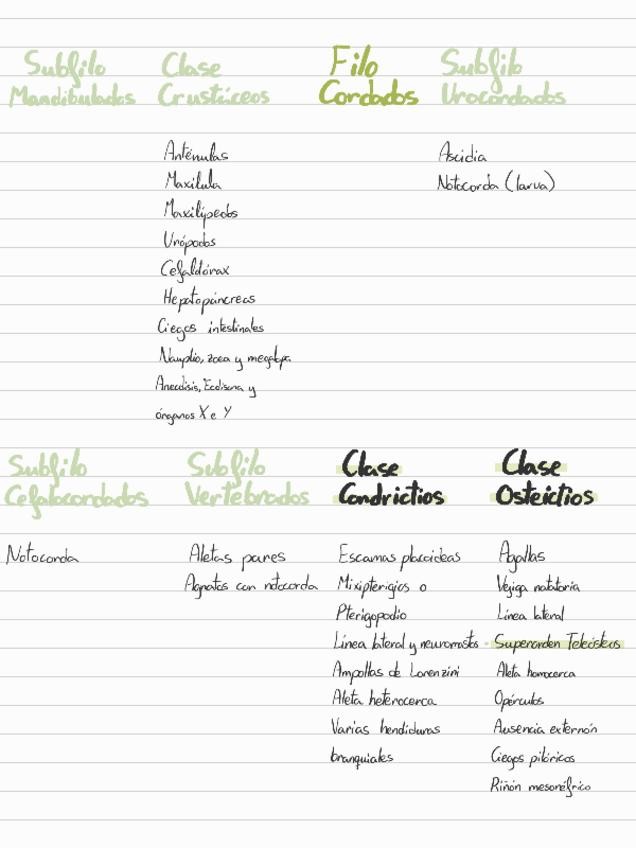 Subfilo
Mandibulados
Clase
Crustáceos
Anténulas
Maxilula
Maxilípedos
Urópodos
Cefaldórax
Hepatopáncreas
Ciegos intestinales
Nauplio, zoea y megalopa
Anecdisis, Ecdisona y
órganos X e Y
Filo
Cordados
Subfilo
Urocordados
Ascidia
Notocorda (larva)
Subfilo
Cefalocordados
Notocorda
Subfilo
Vertebrados
Aletas pares
Agnatos con notocorda
Clase
Condrictios
Escamas placoideas
Mixipterigios o
Pterigopodio
Línea lateral y neuromastos
Ampollas de Lorenzini
Aleta heterocerca
Varias hendiduras
branquiales
Clase
Osteictios
Agallas
Vejiga natatoria
Línea lateral
- Superorden Teleósteos
Aleta homocerca
Opérculos
Ausencia externón
Ciegos pilóricos
Riñón mesonéfrico